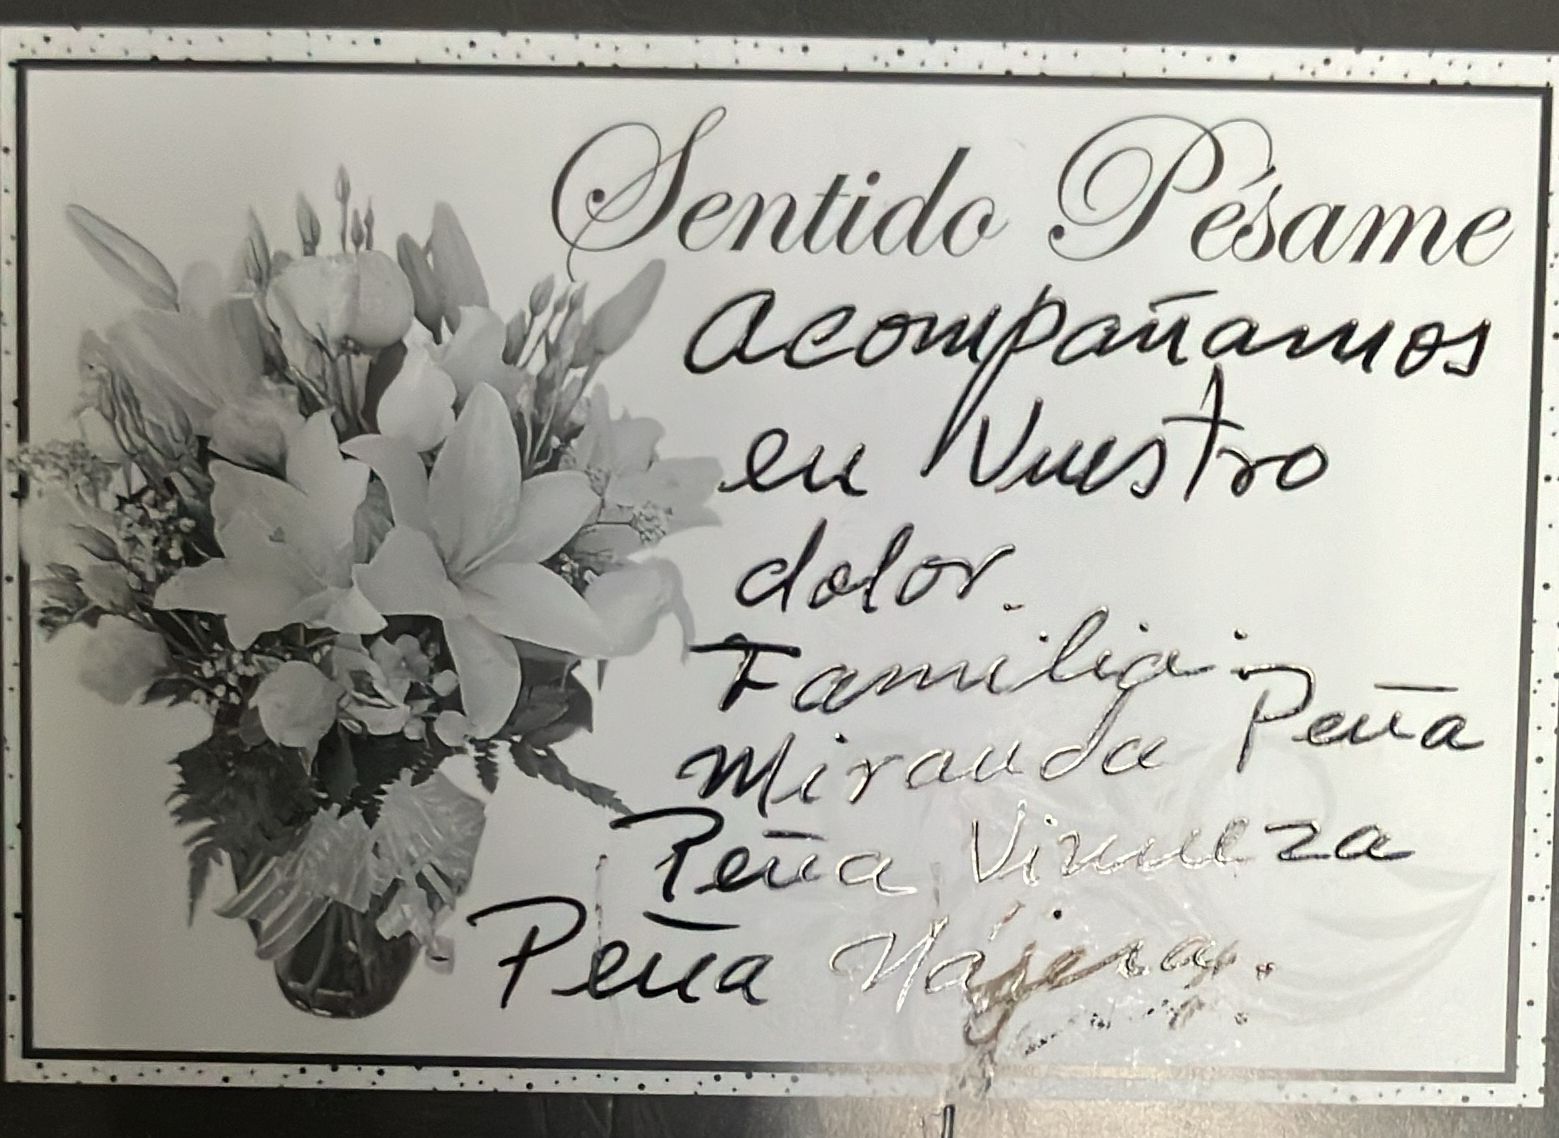 Sentido Pésame
Acompañamos
en Nuestro
dolor.
Familia:
Miranda Peña
Peña Vinueza
Peña Nájera.